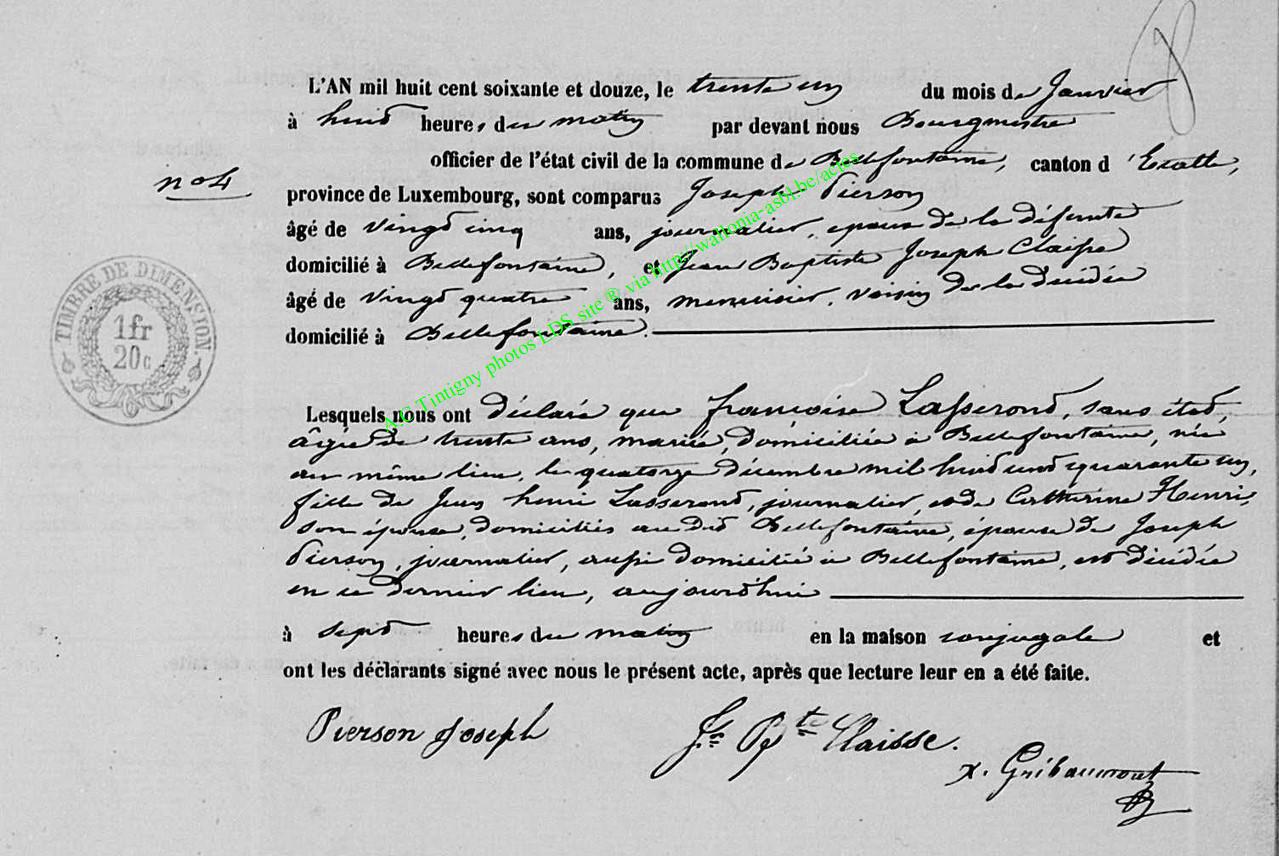 L'AN mil huit cent soixante et douze, le trente un du mois de Janvier
à huit heures du matin par devant nous Bourgmestre
officier de l'état civil de la commune de Bellefontaine, canton d'Etalle,
n° 4
province de Luxembourg, sont comparus Joseph Pierson
âgé de vingt cinq ans, journalier, époux de la défunte
domicilié à Bellefontaine, et Jean Baptiste Joseph Claisse
âgé de vingt quatre ans, menuisier, voisin de la décédée
domicilié à Bellefontaine.
TIMBRE DE DIMENSION.
1fr
20c
A.C Tintigny photos LDS site ® via http://wallonia-asbl.be/actes
Lesquels nous ont déclaré que françoise Lasserond, sans état,
âgée de trente ans, mariée, domiciliée à Bellefontaine, née
au même lieu, le quatorze décembre mil huit cent quarante un,
fille de Jean henri Lasserond, journalier, et de Catherine Henri,
son épouse, domiciliés audit Bellefontaine, épouse de Joseph
Pierson, journalier, aussi domicilié à Bellefontaine, est décédée
en ce dernier lieu, aujourd'hui
à sept heures du matin en la maison conjugale et
ont les déclarants signé avec nous le présent acte, après que lecture leur en a été faite.
Pierson Joseph Jn Bte Claisse.
x. Gribaumont